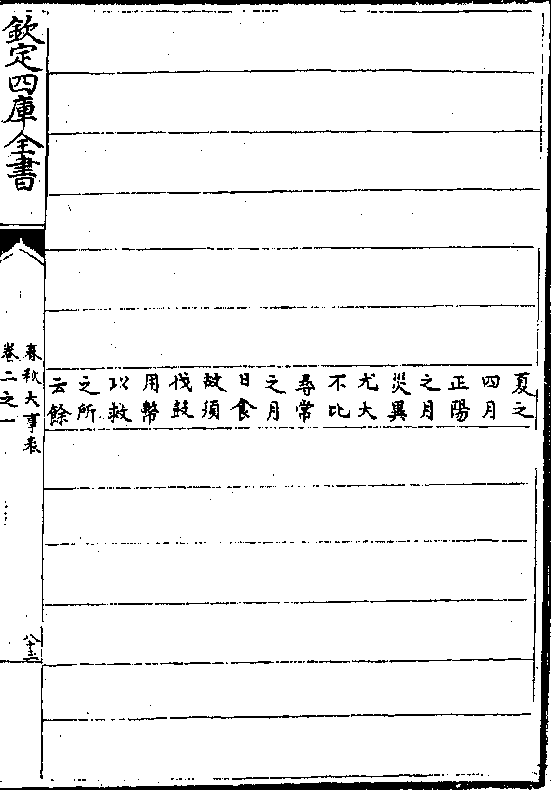 夏之
四月
正陽
之月
災異
尤大
不比
尋常
之月
日食
故須
伐鼓
用幣
以救
之所
云餘
欽定四庫全書
春秋大事表
卷二之一